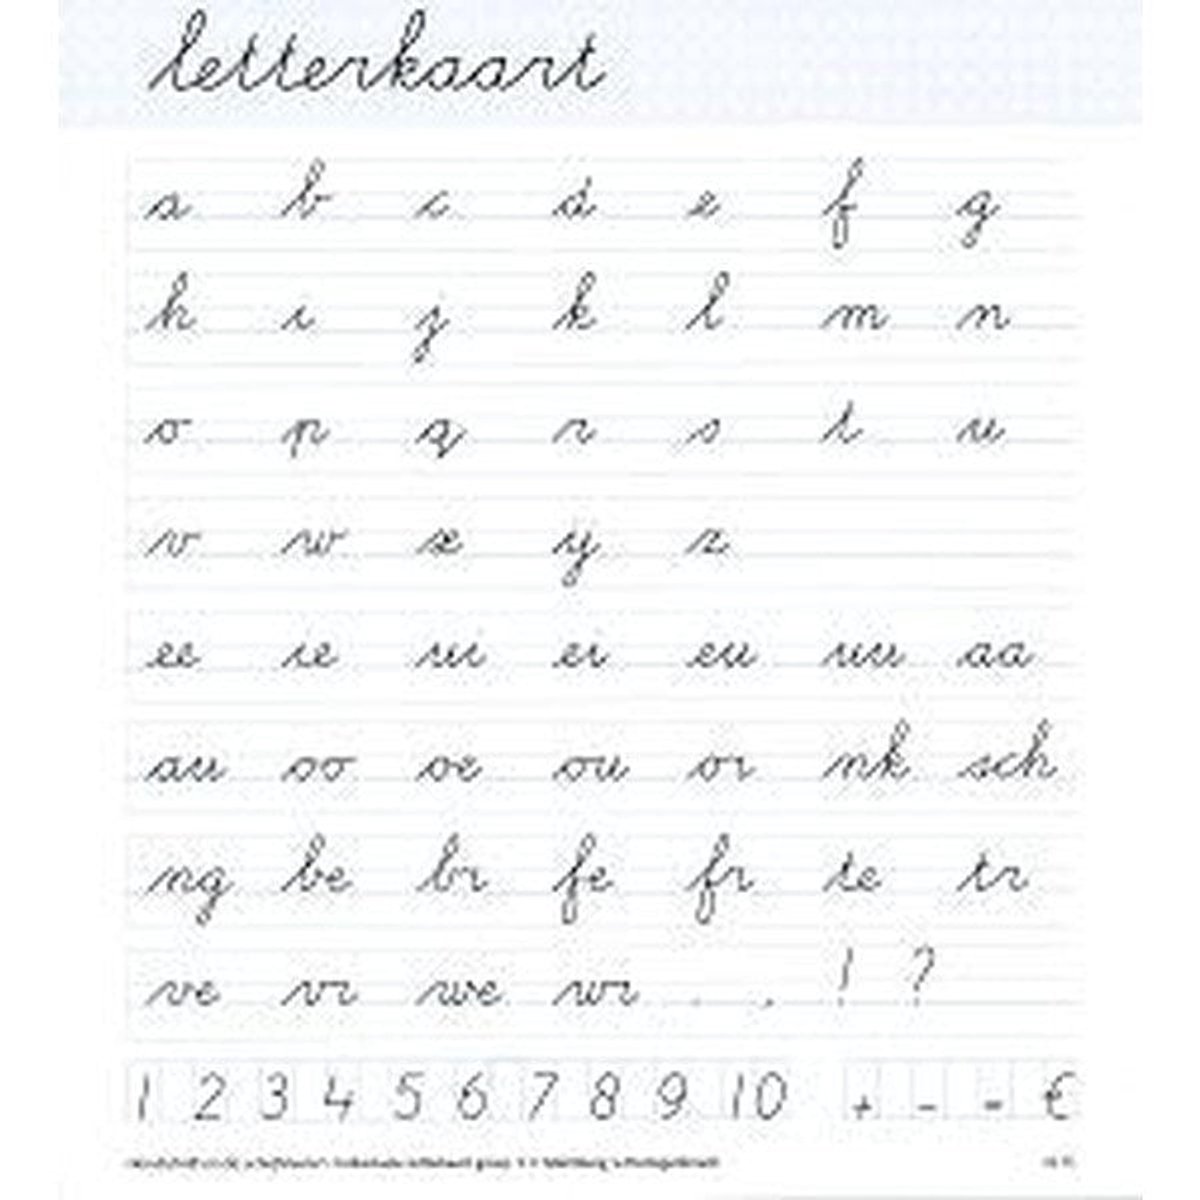 letterkaart
a b c d e f g
h i j k l m n
o p q r s t u
v w x y z
ee ie ui ei eu uu aa
au oo oe ou oi nk sch
ng be br fe fr te tr
ve vr we wr . , ! ?
1 2 3 4 5 6 7 8 9 10 + - = €